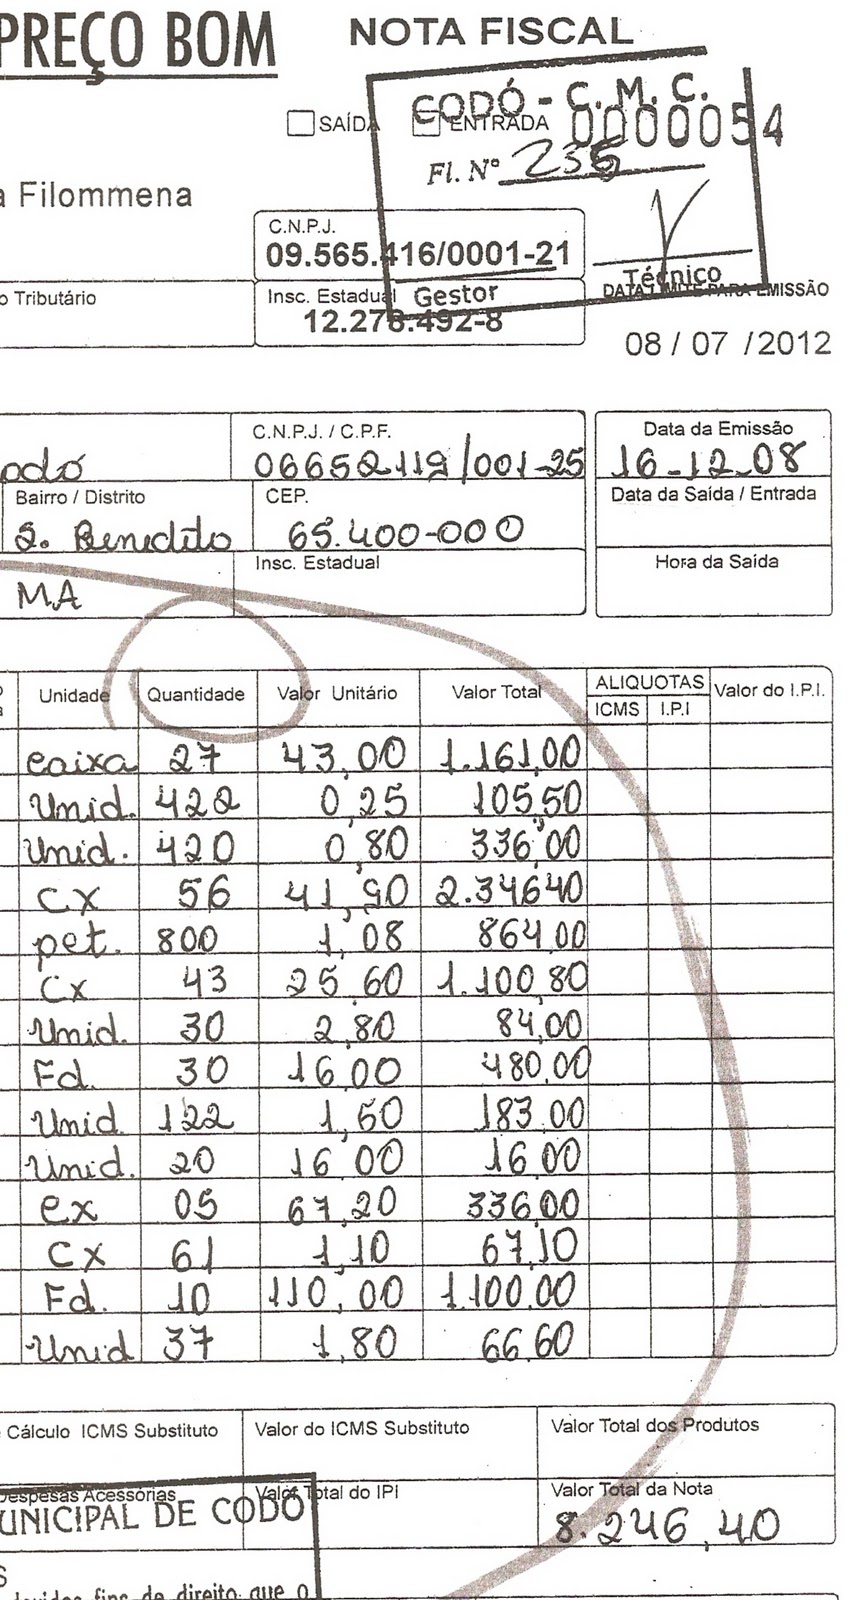 PREÇO BOM NOTA FISCAL
CODÓ - C. M. C.
SAÍDA ENTRADA 0000054
Fl. Nº 235
a Filommena
C.N.P.J.
09.565.416/0001-21
Técnico
o Tributário Insc. Estadual Gestor DATA LIMITE PARA EMISSÃO
12.278.492-8
08 / 07 /2012
C.N.P.J. / C.P.F. Data da Emissão
odó 06652119/001-25 16-12-08
Bairro / Distrito CEP. Data da Saída / Entrada
S. Benedito 65.400-000
Insc. Estadual Hora da Saída
MA
Unidade Quantidade Valor Unitário Valor Total ALIQUOTAS Valor do I.P.I.
ICMS I.P.I
caixa 27 43,00 1.161,00
Unid. 422 0,25 105,50
Unid. 420 0,80 336,00
cx 56 41,90 2.34640
pct. 800 1,08 864,00
Cx 43 25,60 1.100,80
Unid. 30 2,80 84,00
Fd. 30 16,00 480,00
Unid 122 1,50 183,00
Unid. 20 16,00 16,00
cx 05 67,20 336,00
cx 61 1,10 67,10
Fd. 10 110,00 1.100,00
Unid 37 1,80 66,60
Cálculo ICMS Substituto Valor do ICMS Substituto Valor Total dos Produtos
Despesas Acessórias Valor Total do IPI Valor Total da Nota
UNICIPAL DE CODÓ 8.246,40
S
devidos fins de direito que o